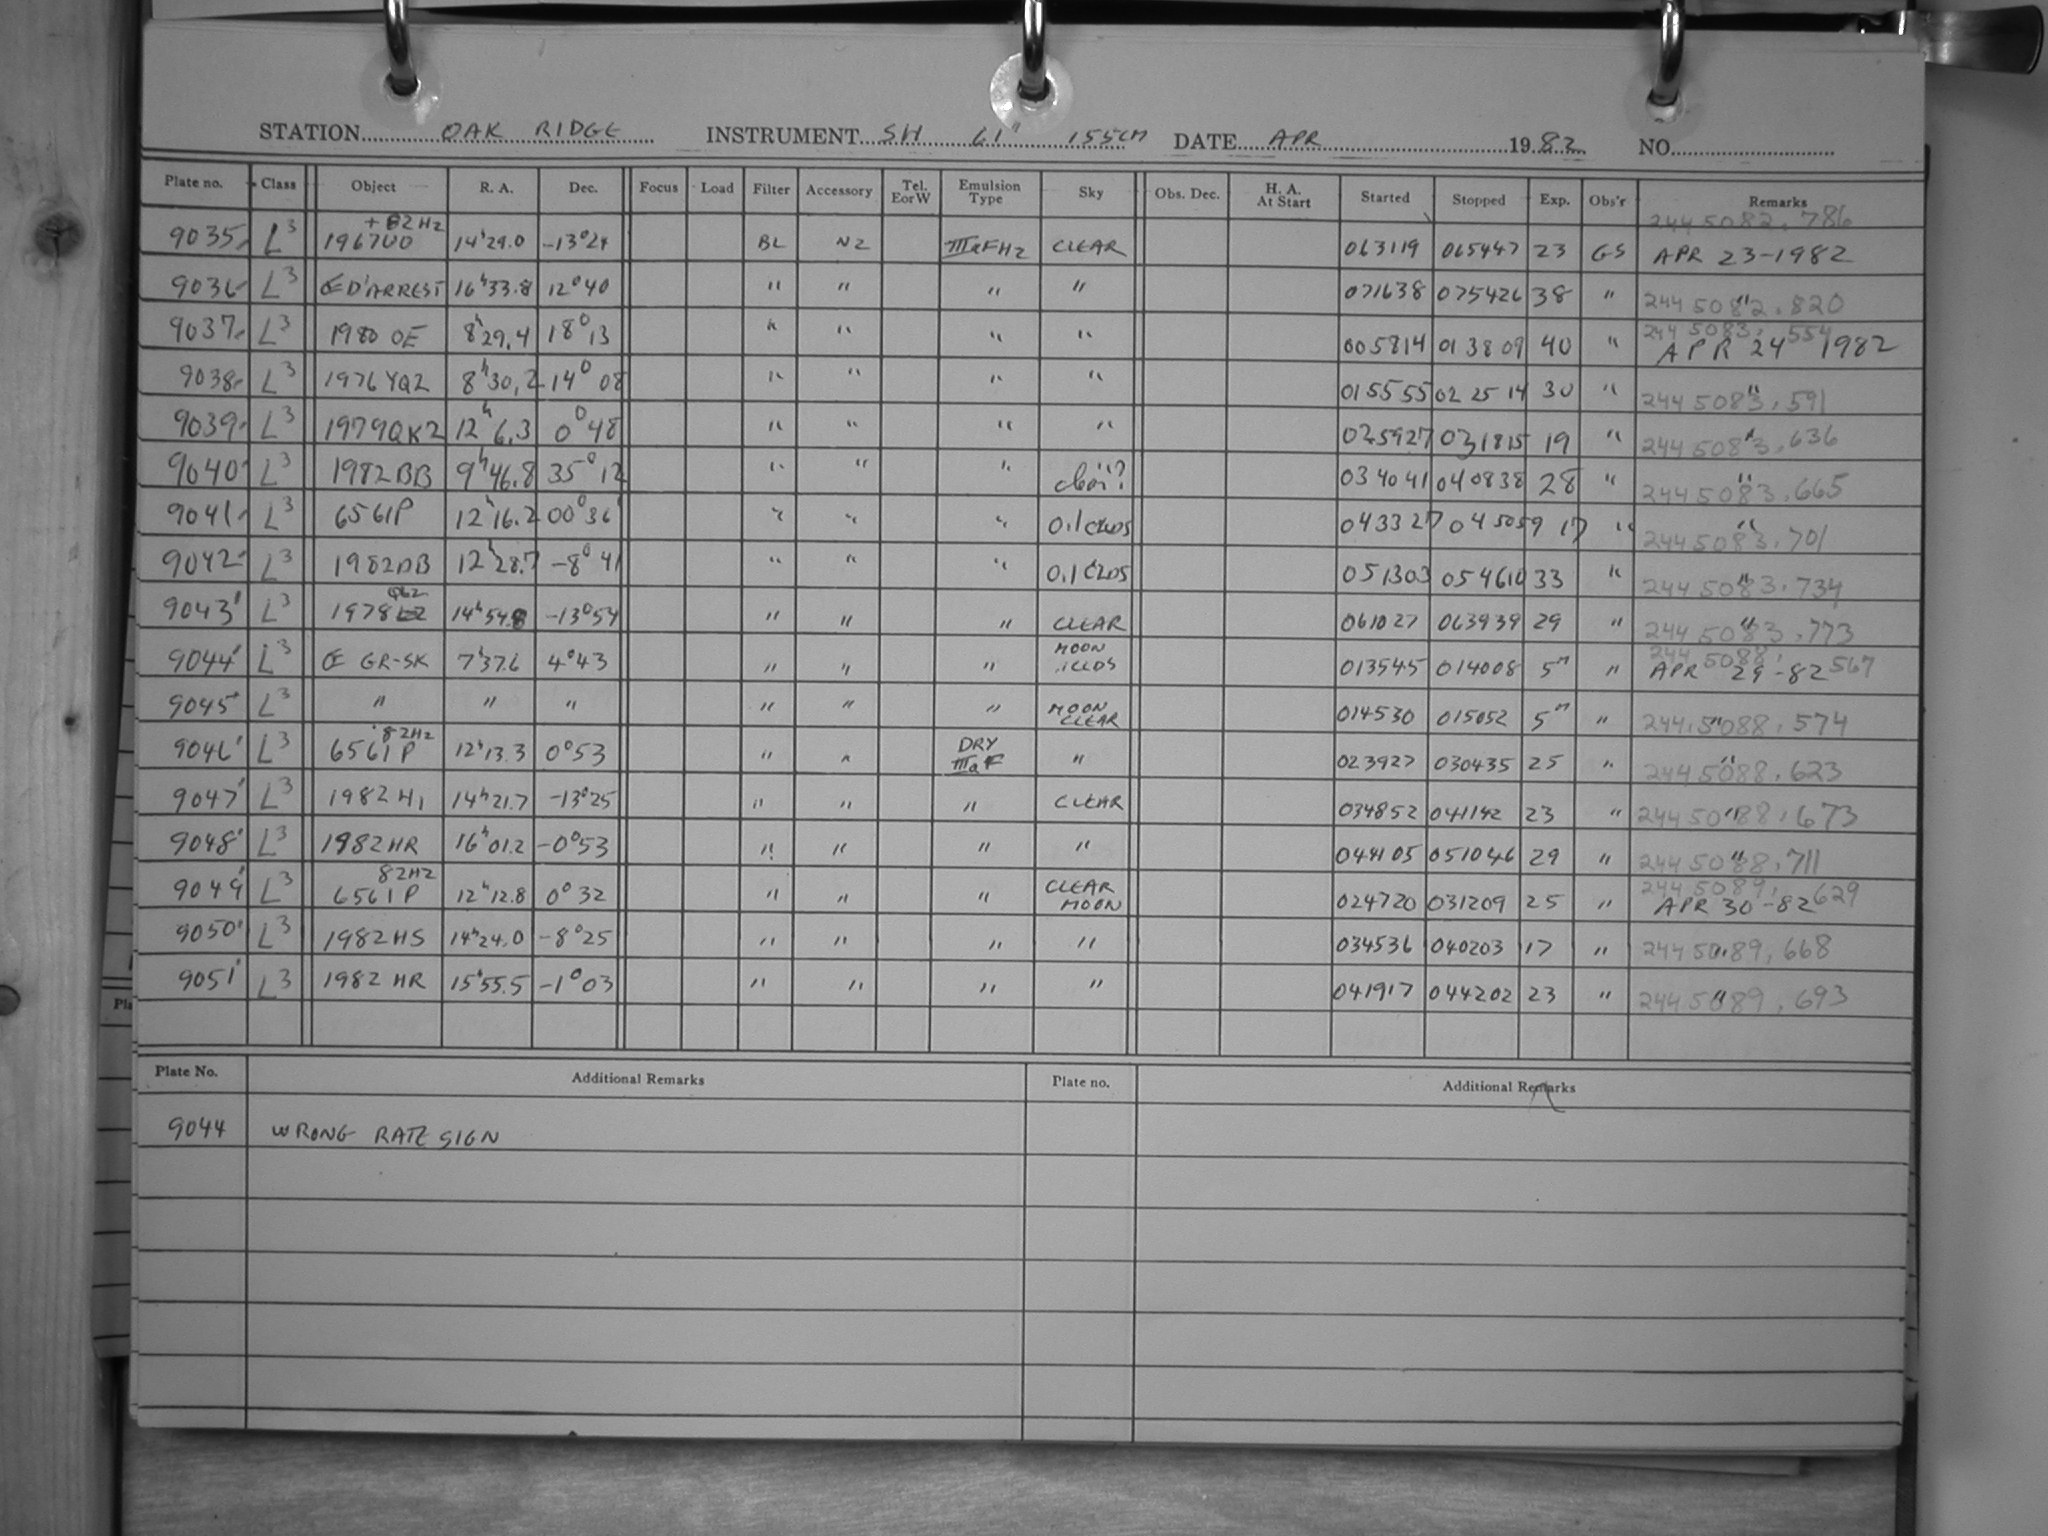 STATION OAK RIDGE INSTRUMENT SH 61" 155CM DATE APR 1982 NO.
Plate no. Class Object R. A. Dec. Focus Load Filter Accessory Tel. EorW Emulsion Type Sky Obs. Dec. H. A. At Start Started Stopped Exp. Obs'r Remarks
+ 82HZ 244 5082.786
9035 L3 1967UO 14h29.0 -13°24 BL N2 IIIaFH2 CLEAR 063119 065447 23 GS APR 23-1982
9036 L3 D'ARREST 16h33.8 12°40 " " " " 071638 075426 38 " " 244 5082.820
9037 L3 1980 OE 8h29.4 18°13 " " " " 005814 013809 40 " 244 5083.554 APR 24 1982
9038 L3 1976YQ2 8h30.2 14°08 " " " " 015555 022514 30 " " 244 5083.591
9039 L3 1979QK2 12h6.3 0°48 " " " " 025927 031815 19 " " 244 5083.636
9040 L3 1982BB 9h46.8 35°12 " " " " 034041 040838 28 " " 244 5083.665
9041 L3 6561P 12h16.2 00°36' " " " 0.1 CLDS 043327 045059 17 " " 244 5083.701
9042 L3 1982DB 12h28.7 -8°41 " " " 0.1 CLDS 051303 054610 33 " " 244 5083.734
9043 L3 1978 14h54.8 -13°54 " " " CLEAR 061027 063939 29 " " 244 5083.773
9044 L3 GR-SK 7h37.6 4°43 " " " MOON .1CLDS 013545 014008 5m " 244 5088.567 APR 29-82
9045 L3 " " " " " " MOON CLEAR 014530 015052 5m " " 244 5088.574
9046 L3 6561P 82HZ 12h13.3 0°53 " " DRY IIIaF " 023927 030435 25 " " 244 5088.623
9047 L3 1982 H1 14h21.7 -13°25 " " " CLEAR 034852 041142 23 " " 244 5088.673
9048 L3 1982HR 16h01.2 -0°53 " " " " 044105 051046 29 " " 244 5088.711
9049 L3 6561P 82HZ 12h12.8 0°32 " " " CLEAR MOON 024720 031209 25 " 244 5089.629 APR 30-82
9050 L3 1982HS 14h24.0 -8°25 " " " " 034536 040203 17 " " 244 5089.668
9051 L3 1982 HR 15h55.5 -1°03 " " " " 041917 044202 23 " " 244 5089.693
Plate No. Additional Remarks Plate no. Additional Remarks
9044 WRONG RATE SIGN
Pla